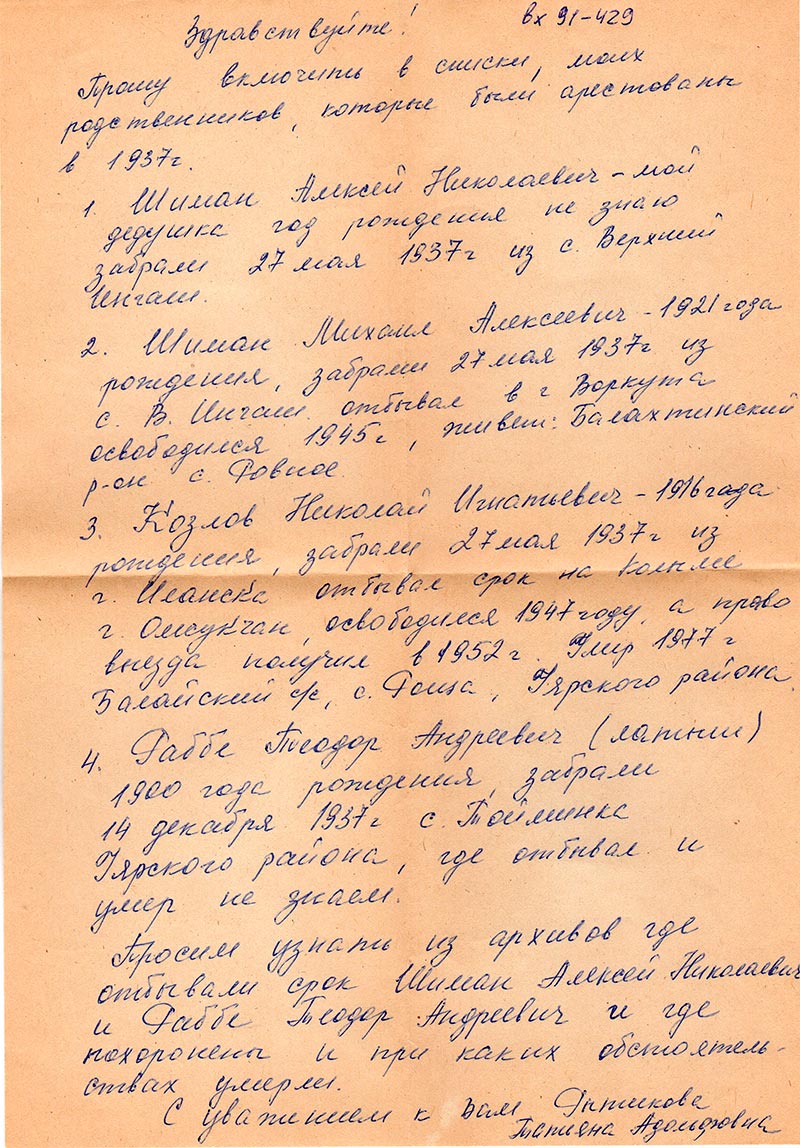 вх 91-429
Здравствуйте!
Прошу включить в списки, моих
родственников, которые были арестованы
в 1937г.
1. Шиман Алексей Николаевич - мой
дедушка год рождения не знаю
забрали 27 мая 1937г из с. Верхний
Ингаш.
2. Шиман Михаил Алексеевич - 1921 года
рождения, забрали 27 мая 1937г из
с. В. Ингаш отбывал в г Воркута
освободился 1945г, живет: Балахтинский
р-он с. Ровное.
3. Козлов Николай Игнатьевич - 1916 года
рождения, забрали 27 мая 1937г из
г. Иланска отбывал срок на Колыме
г. Омсукчан, освободился 1947 году, а право
выезда получил в 1952г. Умер 1977г
Балайский с/с, с. Роща, Уярского района.
4. Раббе Теодор Андреевич (латыш)
1900 года рождения, забрали
14 декабря 1937г с. Тойлинка
Уярского района, где отбывал и
умер не знаем.
Просим узнать из архивов где
отбывали срок Шиман Алексей Николаевич
и Раббе Теодор Андреевич и где
похоронены и при каких обстоятель-
ствах умерли.
С уважением к Вам
Татьяна Адольфовна